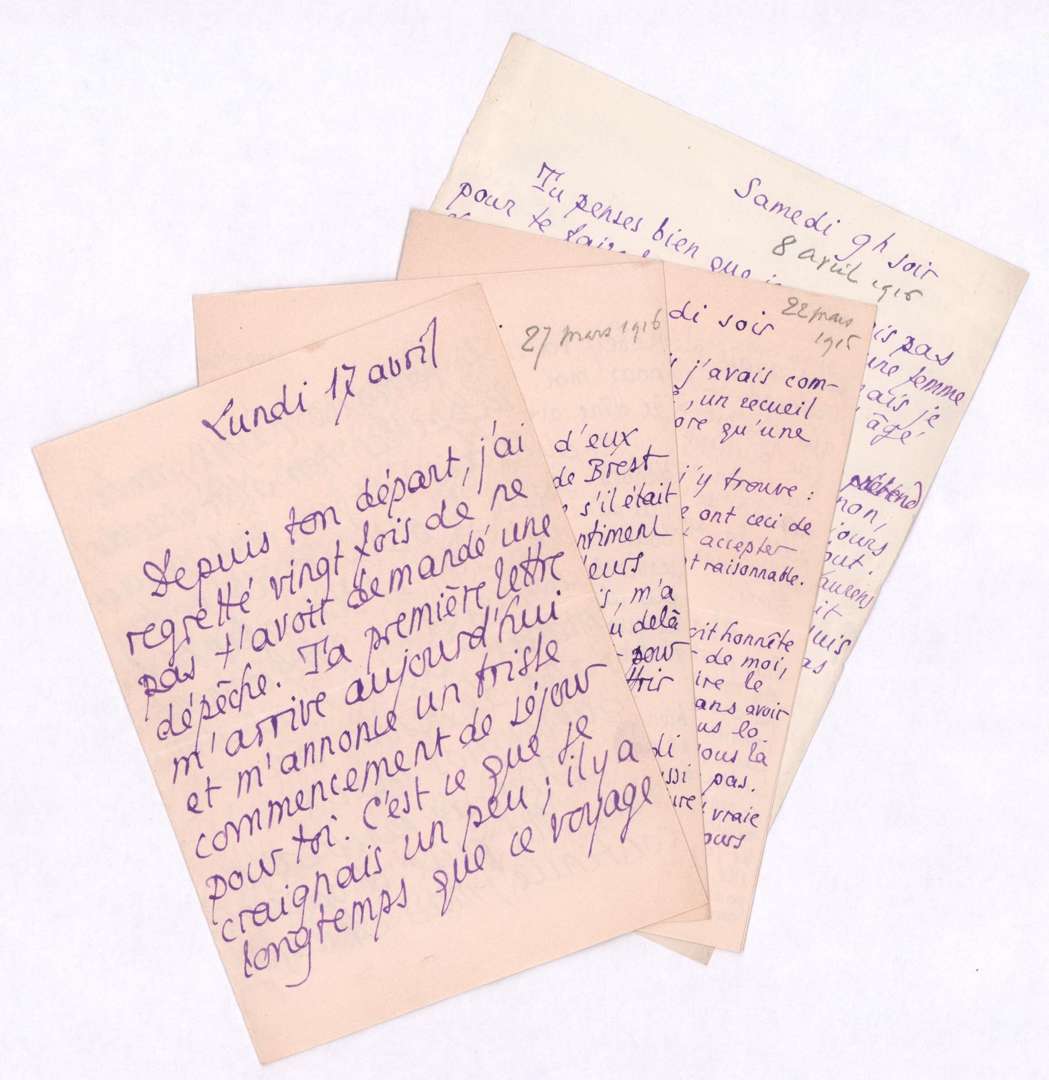 Lundi 17 avril
Depuis ton départ, j'ai
regretté vingt fois de ne
pas t'avoir demandé une
dépêche. Ta première lettre
m'arrive aujourd'hui
et m'annonce un triste
commencement de séjour
pour toi. C'est ce que je
craignais un peu ; il y a
longtemps que ce voyage
27 mars 1916
d'eux
de Brest
s'il était
ntiment
eurs
s, m'a
u delà
pour
di
22 mars
1916
di soir
j'avais com-
, un recueil
ore qu'une
j'y trouve :
ont ceci de
accepter
t raisonnable.
oit honnête
de moi,
ire le
ans avoir
us lo
vous là
ssi pas.
ure vraie
ours
Samedi 9h soir
8 avril 1916
Tu penses bien que je
pour te faire
is pas
une femme
ais je
âgé
prétend
non,
jours
out.
aurens
it
uis
as